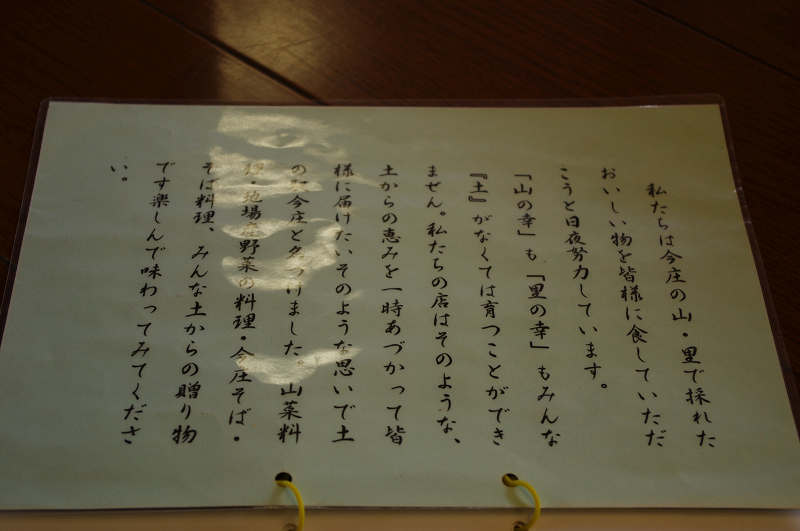 私たちは今庄の山・里で採れた
おいしい物を皆様に食していただ
こうと日夜努力しています。
「山の幸」も「里の幸」もみんな
『土』がなくては育つことができ
ません。私たちの店はそのような、
土からの恵みを一時あづかって皆
様に届けたいそのような思いで土
の駅今庄と名づけました。山菜料
理・地場産野菜の料理・今庄そば・
そば料理、みんな土からの贈り物
です楽しんで味わってみてくださ
い。